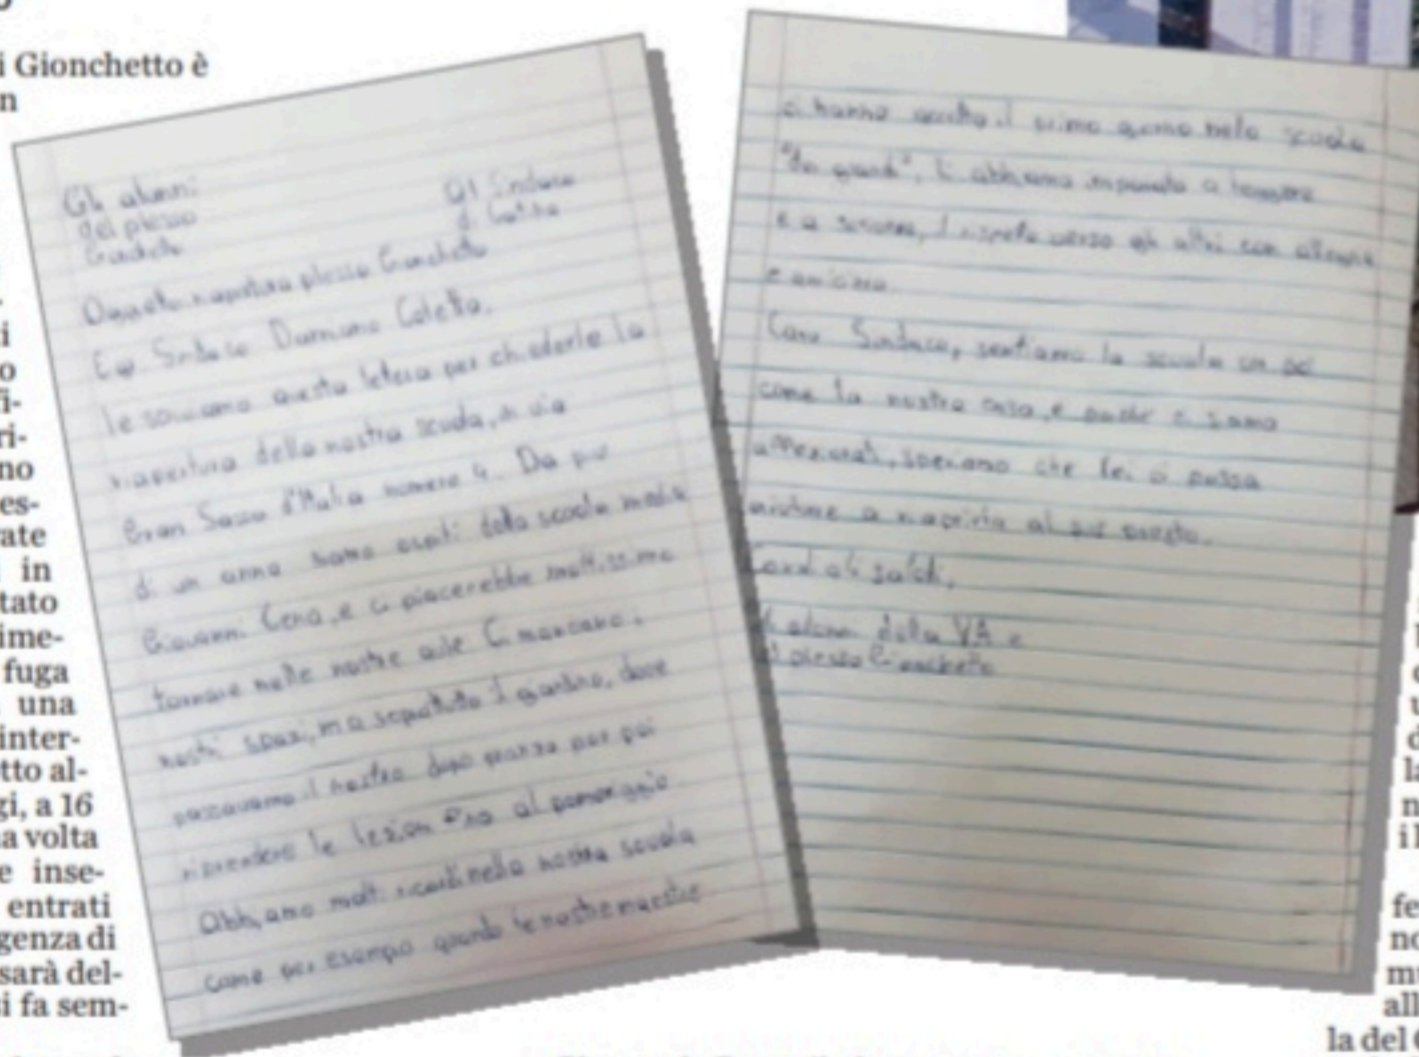 i Gionchetto è
n
i
o
fi-
ri-
no
es-
ate
in
tato
ime-
fuga
una
inter-
tto al-
gi, a 16
na volta
e inse-
entrati
genza di
sarà del-
si fa sem-
Gli alunni
del plesso
Gionchetto
Al Sindaco
di Latina
Oggetto riapertura plesso Gionchetto
Sindaco Damiano Coletta,
le scriviamo questa lettera per chiederle la
riapertura della nostra scuola, in via
Gran Sasso d'Italia numero 4. Da più
di un anno siamo ospiti della scuola media
Giovanni Cena, e ci piacerebbe moltissimo
tornare nelle nostre aule Ci mancano i
nostri spazi, ma soprattutto il giardino, dove
passavamo il nostro dopo pranzo per poi
riprendere le lezioni fino al pomeriggio.
Abbiamo molti ricordi nella nostra scuola
come per esempio quando le nostre maestre
ci hanno accolto il primo giorno nella scuola
"dei grandi", lì abbiamo imparato a leggere
e a scrivere, il rispetto verso gli altri con allegria
e amicizia.
Caro Sindaco, sentiamo la scuola un po'
come la nostra casa, e poiché ci siamo
affezionati, speriamo che lei ci possa
aiutare a riaprirla al più presto.
Cordiali saluti,
Gli alunni della VA e
plesso Gionchetto
fe
no
mu
all
la del